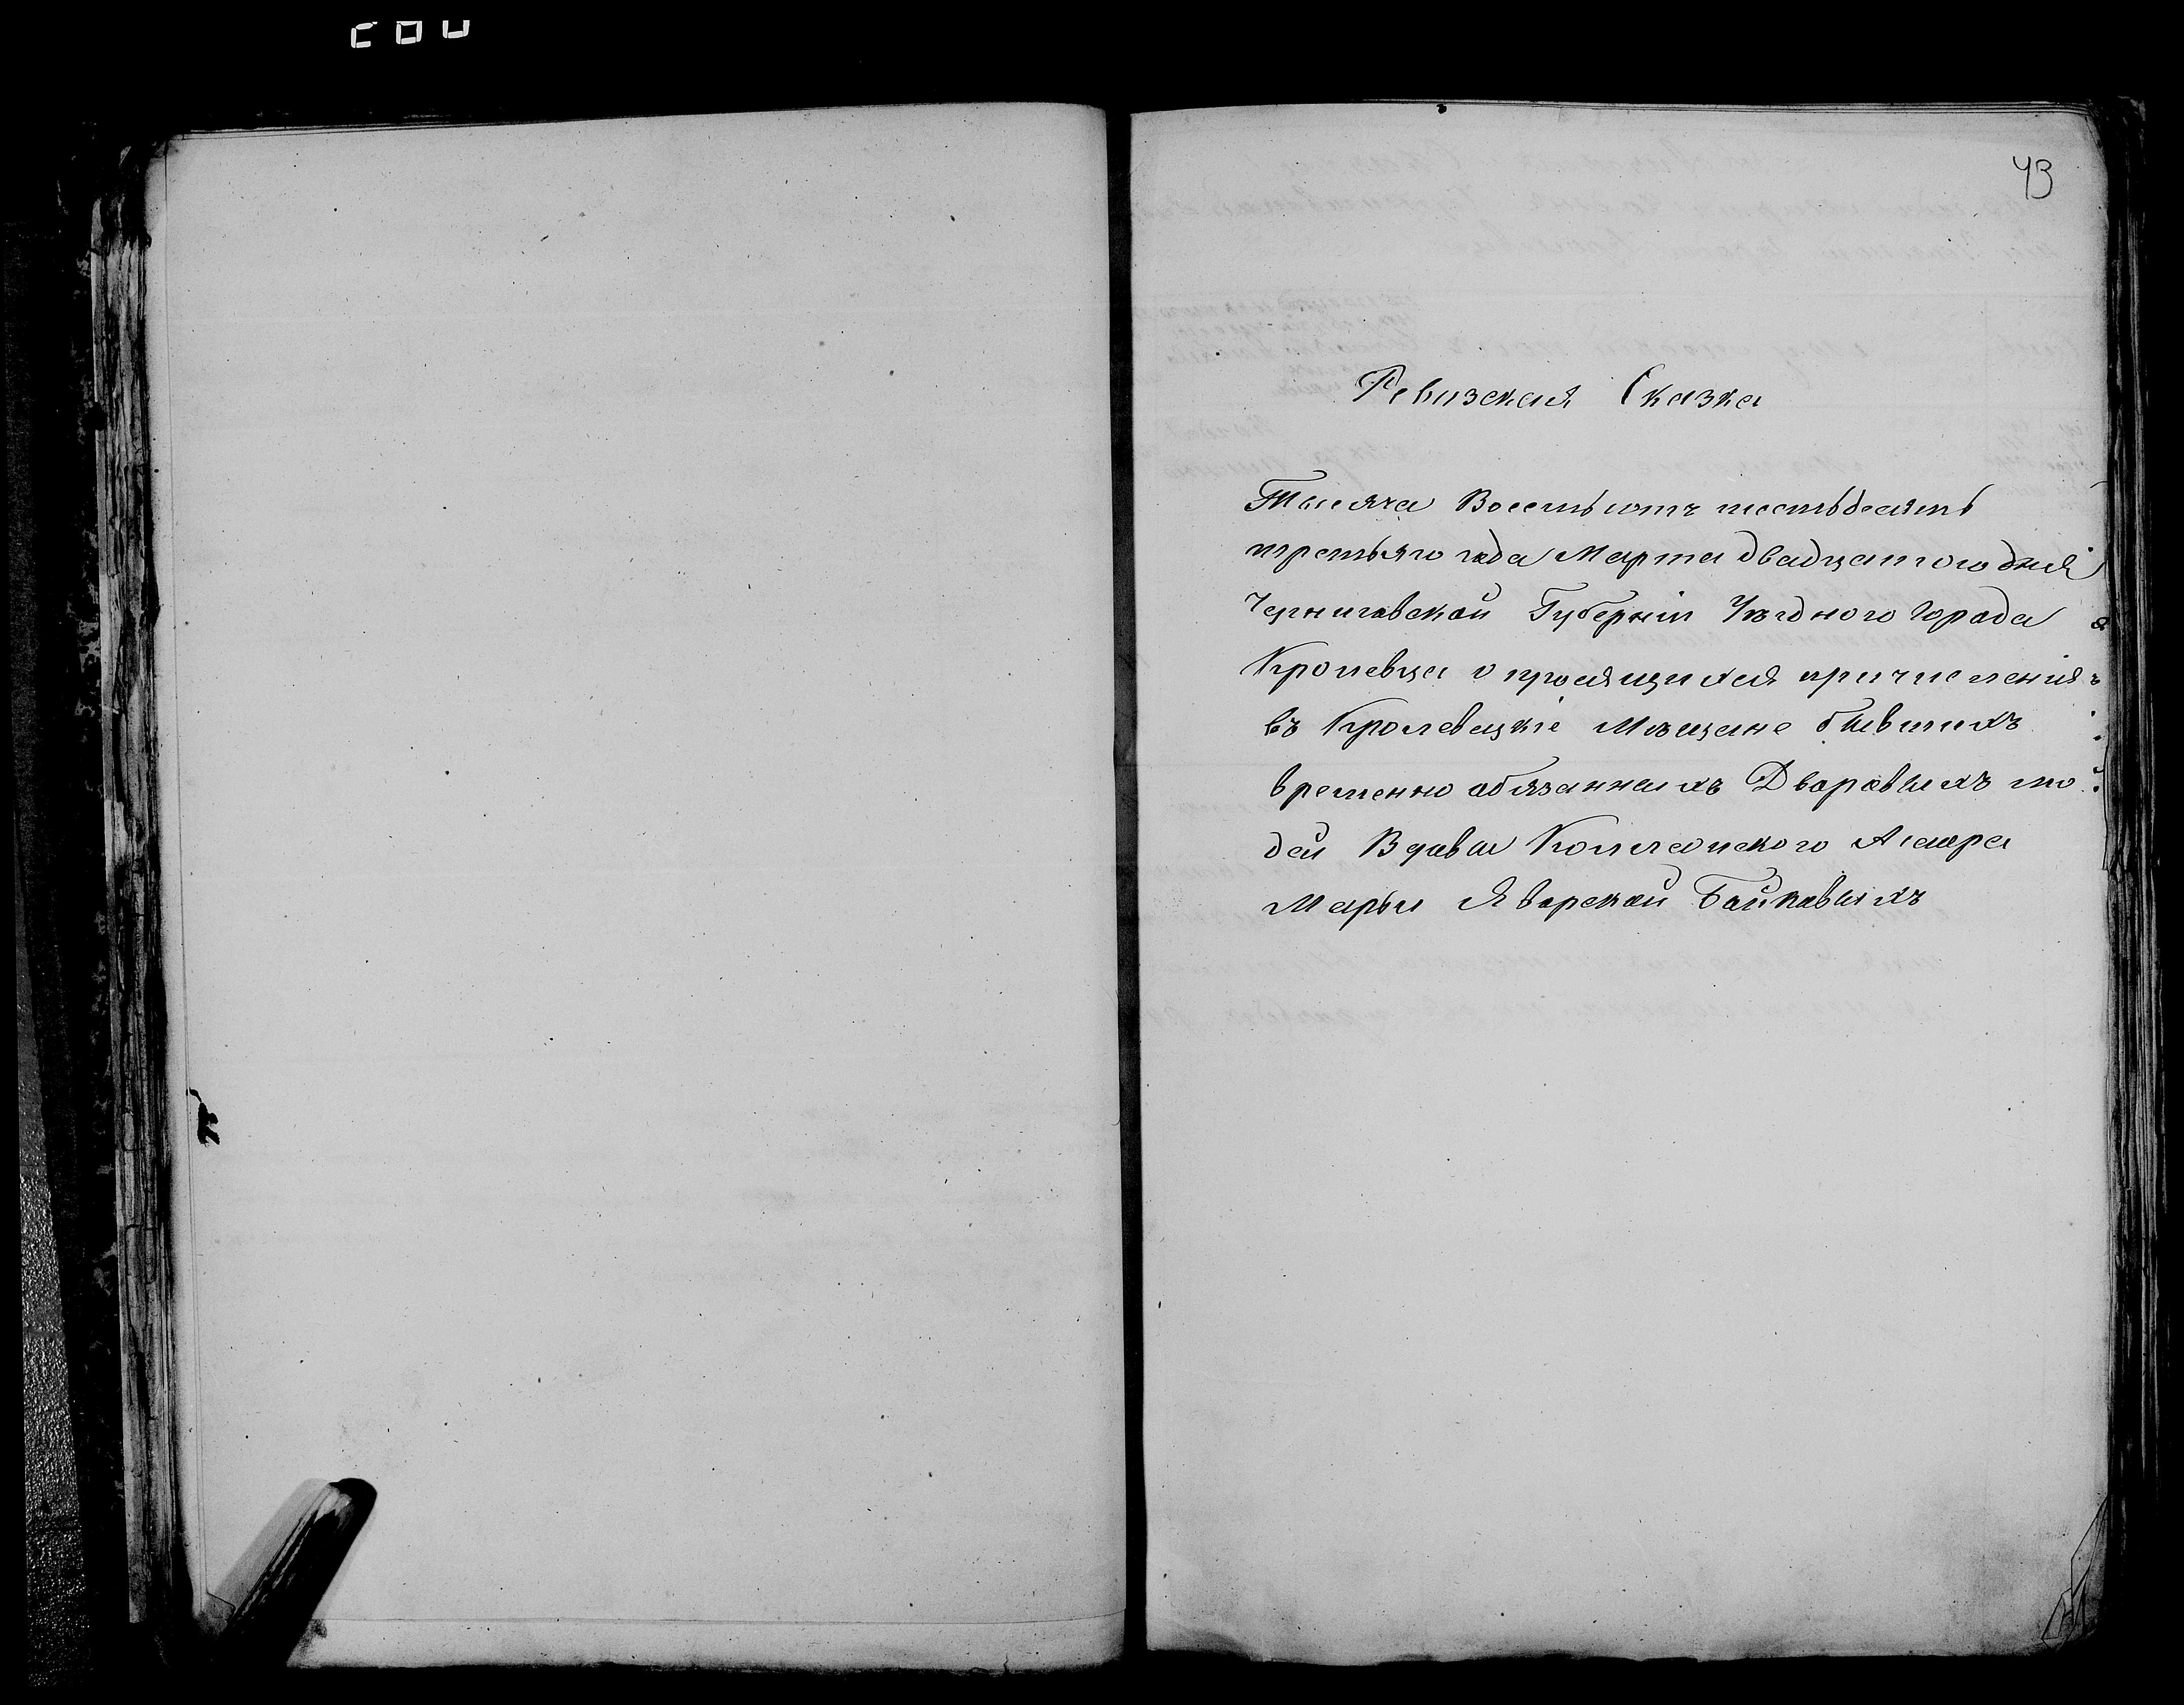 43
Ревизская Сказка
Тысяча Восемьсотъ шестьдесятъ
третьяго года Марта двадцатого дня
Черниговской Губерніи Уѣздного Города
Кролевца о просящихся причисленія
въ Кролевецкіе Мѣщане бывшихъ
временно обязанныхъ Дворовыхъ лю
дей Вдовы Коллежского Асесора
Марьи Яворской Бойковыхъ